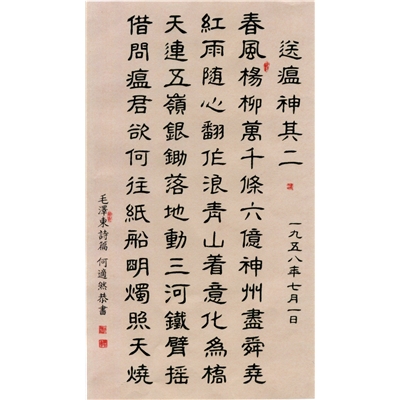 送瘟神其二
一九五八年七月一日
春風楊柳萬千條六億神州盡舜堯
紅雨隨心翻作浪青山着意化為橋
天連五嶺銀鋤落地動三河鐵臂搖
借問瘟君欲何往紙船明燭照天燒
毛澤東詩篇 何適然恭書